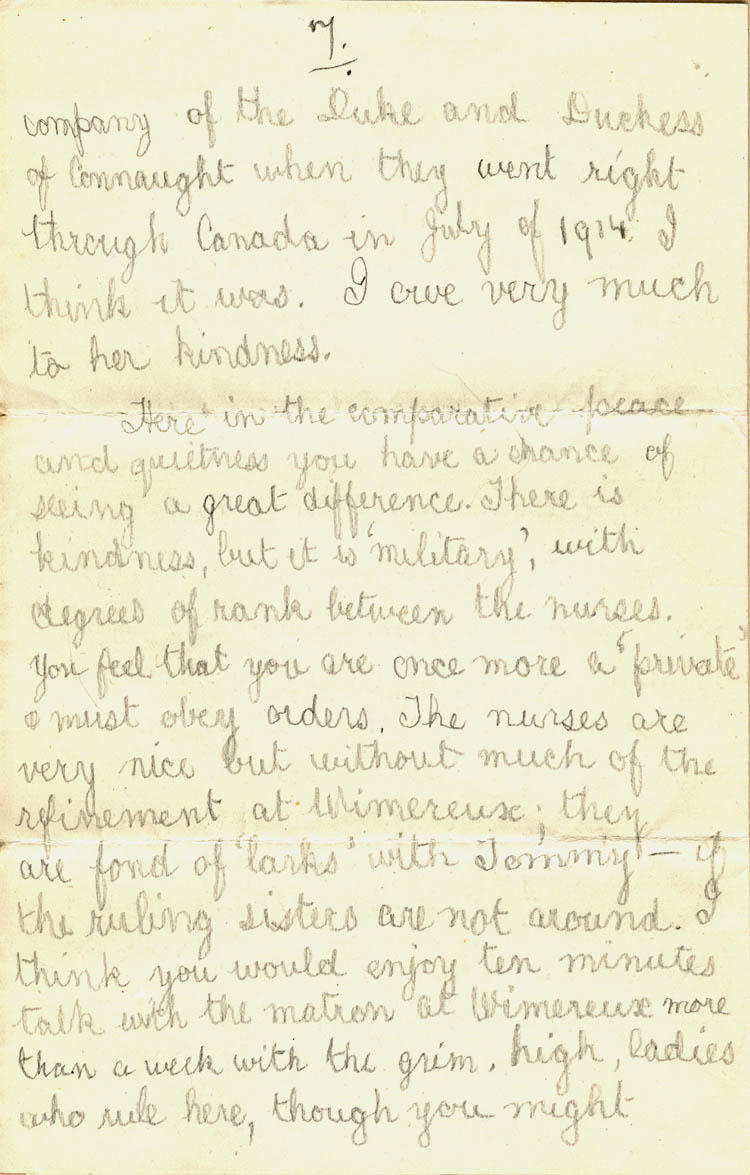 7.
company of the Duke and Duckess
of Connaught when they went right
through Canada in July of 1914. I
think it was. I owe very much
to her kindness.
Here in the comparative peace
and quietness you have a chance of
seeing a great difference. There is
kindness, but it is 'military', with
degrees of rank between the nurses.
You feel that you are once more a "private"
& must obey orders. The nurses are
very nice but without much of the
refinement at Wimereux; they
are fond of 'larks' with Tommy — if
the ruling sisters are not around. I
think you would enjoy ten minutes
talk with the matron at Wimereux more
than a week with the grim, high, ladies
who rule here, though you might